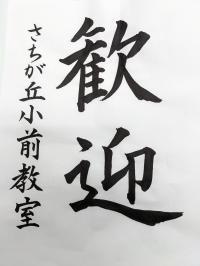 歓迎
さちが丘小前教室